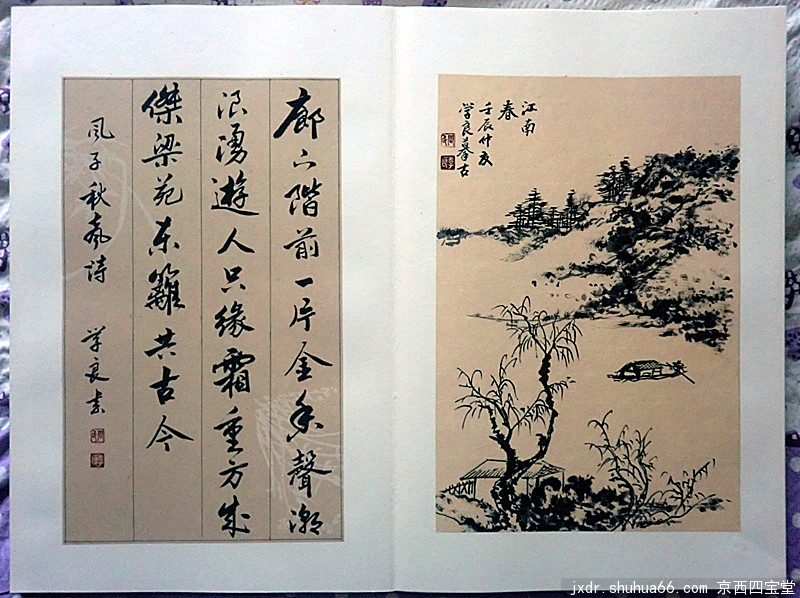 廊下階前一片金香聲潮
浪湧遊人只緣霜重方成
傑梁苑东籬共古今
风子秋 詩 学良
江南
春
壬辰仲夏
学良摹古
jxdr.shuhua66.com 京西四宝堂